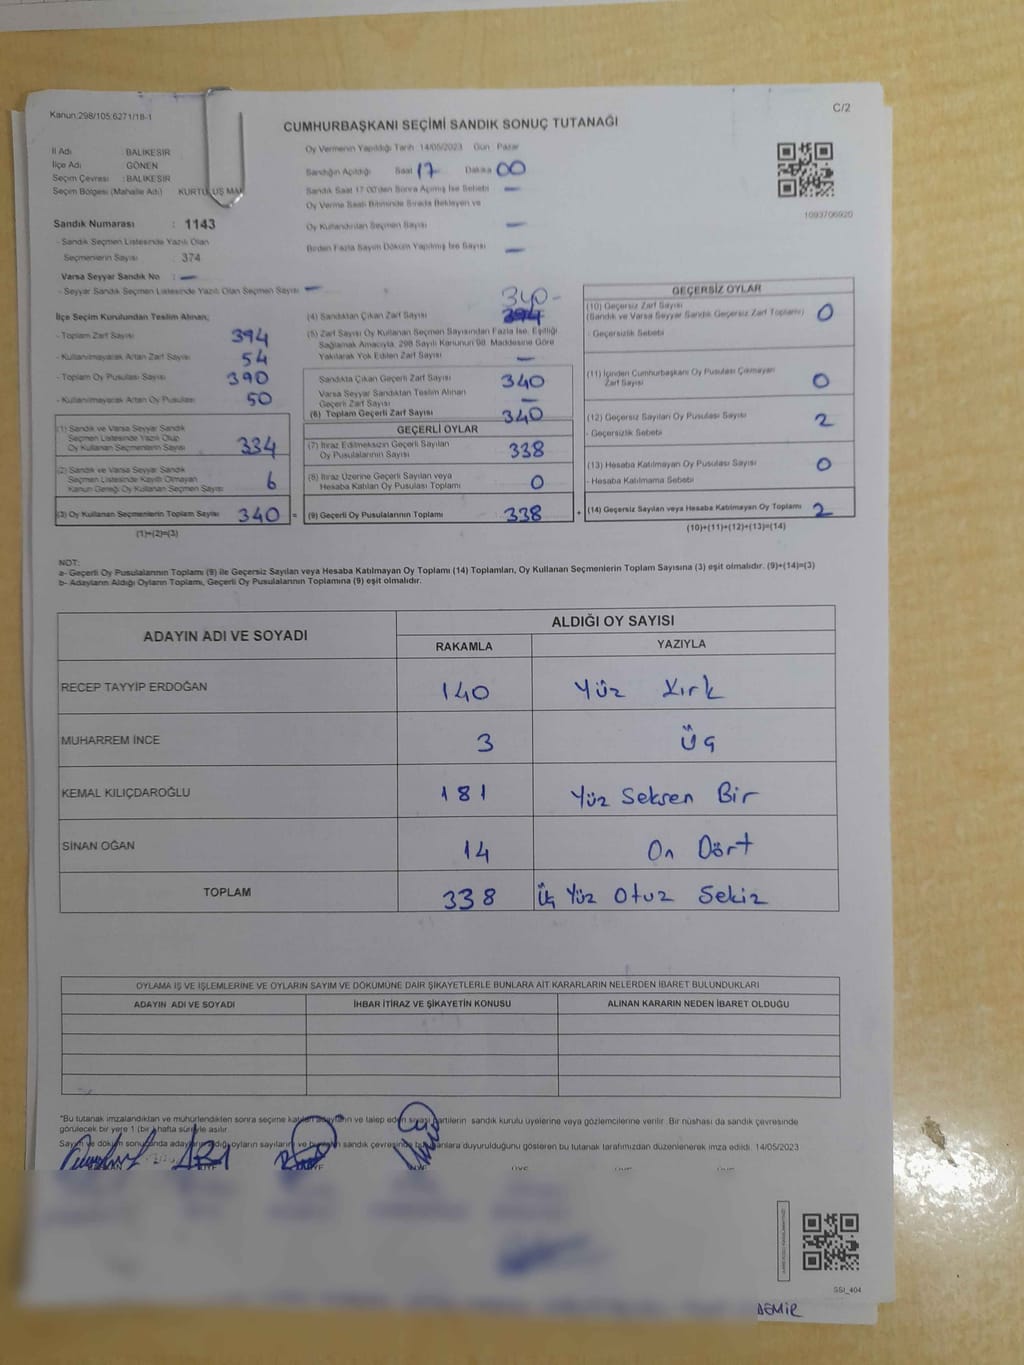 Kanun:298/105 6271/18-1
C/2
CUMHURBAŞKANI SEÇİMİ SANDIK SONUÇ TUTANAĞI
İl Adı BALIKESİR
İlçe Adı GÖNEN
Seçim Çevresi : BALIKESİR
Seçim Bölgesi (Mahalle Adı) KURTULUŞ MAH
Oy Vermenin Yapıldığı Tarih 14/05/2023 Gün Pazar
Sandığın Açıldığı Saat 17 Dakika 00
Sandık Saat 17:00'den Sonra Açılmış İse Sebebi —
Oy Verme Saati Bitiminde Sırada Bekleyen ve
Oy Kullandırılan Seçmen Sayısı —
Birden Fazla Sayım Döküm Yapılmış İse Sayısı —
1093706920
Sandık Numarası : 1143
- Sandık Seçmen Listesinde Yazılı Olan
Seçmenlerin Sayısı 374
Varsa Seyyar Sandık No : —
- Seyyar Sandık Seçmen Listesinde Yazılı Olan Seçmen Sayısı —
İlçe Seçim Kurulundan Teslim Alınan;
- Toplam Zarf Sayısı 394
- Kullanılmayarak Artan Zarf Sayısı 54
- Toplam Oy Pusulası Sayısı 390
- Kullanılmayarak Artan Oy Pusulası 50
(1) Sandık ve Varsa Seyyar Sandık
Seçmen Listesinde Yazılı Olup
Oy Kullanan Seçmenlerin Sayısı 334
(2) Sandık ve Varsa Seyyar Sandık
Seçmen Listesinde Kayıtlı Olmayan
Kanun Gereği Oy Kullanan Seçmen Sayısı 6
(3) Oy Kullanan Seçmenlerin Toplam Sayısı 340 =
(1)+(2)=(3)
340-
(4) Sandıktan Çıkan Zarf Sayısı 394
(5) Zarf Sayısı Oy Kullanan Seçmen Sayısından Fazla İse, Eşitliği
Sağlamak Amacıyla, 298 Sayılı Kanunun 98. Maddesine Göre
Yakılarak Yok Edilen Zarf Sayısı —
Sandıkta Çıkan Geçerli Zarf Sayısı 340
Varsa Seyyar Sandıktan Teslim Alınan
Geçerli Zarf Sayısı —
(6) Toplam Geçerli Zarf Sayısı 340
GEÇERLİ OYLAR
(7) İtiraz Edilmeksizin Geçerli Sayılan
Oy Pusulalarının Sayısı 338
(8) İtiraz Üzerine Geçerli Sayılan veya
Hesaba Katılan Oy Pusulası Toplamı 0
(9) Geçerli Oy Pusulalarının Toplamı 338 +
GEÇERSİZ OYLAR
(10) Geçersiz Zarf Sayısı
(Sandık ve Varsa Seyyar Sandık Geçersiz Zarf Toplamı) 0
- Geçersizlik Sebebi
(11) İçinden Cumhurbaşkanı Oy Pusulası Çıkmayan
Zarf Sayısı 0
(12) Geçersiz Sayılan Oy Pusulası Sayısı 2
- Geçersizlik Sebebi
(13) Hesaba Katılmayan Oy Pusulası Sayısı 0
- Hesaba Katılmama Sebebi
(14) Geçersiz Sayılan veya Hesaba Katılmayan Oy Toplamı 2
(10)+(11)+(12)+(13)=(14)
NOT:
a- Geçerli Oy Pusulalarının Toplamı (9) ile Geçersiz Sayılan veya Hesaba Katılmayan Oy Toplamı (14) Toplamları, Oy Kullanan Seçmenlerin Toplam Sayısına (3) eşit olmalıdır. (9)+(14)=(3)
b- Adayların Aldığı Oyların Toplamı, Geçerli Oy Pusulalarının Toplamına (9) eşit olmalıdır.
ADAYIN ADI VE SOYADI ALDIĞI OY SAYISI
RAKAMLA YAZIYLA
RECEP TAYYİP ERDOĞAN 140 Yüz Kırk
MUHARREM İNCE 3 Üç
KEMAL KILIÇDAROĞLU 181 Yüz Seksen Bir
SİNAN OĞAN 14 On Dört
TOPLAM 338 Üç Yüz Otuz Sekiz
OYLAMA İŞ VE İŞLEMLERİNE VE OYLARIN SAYIM VE DÖKÜMÜNE DAİR ŞİKAYETLERLE BUNLARA AİT KARARLARIN NELERDEN İBARET BULUNDUKLARI
ADAYIN ADI VE SOYADI İHBAR İTİRAZ VE ŞİKAYETİN KONUSU ALINAN KARARIN NEDEN İBARET OLDUĞU
*Bu tutanak imzalandıktan ve mühürlendikten sonra seçime katılan adayların ve talep eden siyasi partilerin sandık kurulu üyelerine veya gözlemcilerine verilir. Bir nüshası da sandık çevresinde
görülecek bir yere 1 (bir) hafta süreyle asılır
Sayım ve döküm sonucunda adayların aldığı oyların sayılarını ve sandık çevresinde duyurulduğunu gösteren bu tutanak tarafımızdan düzenlenerek imza edildi. 14/05/2023
SSI_404
DEMİR